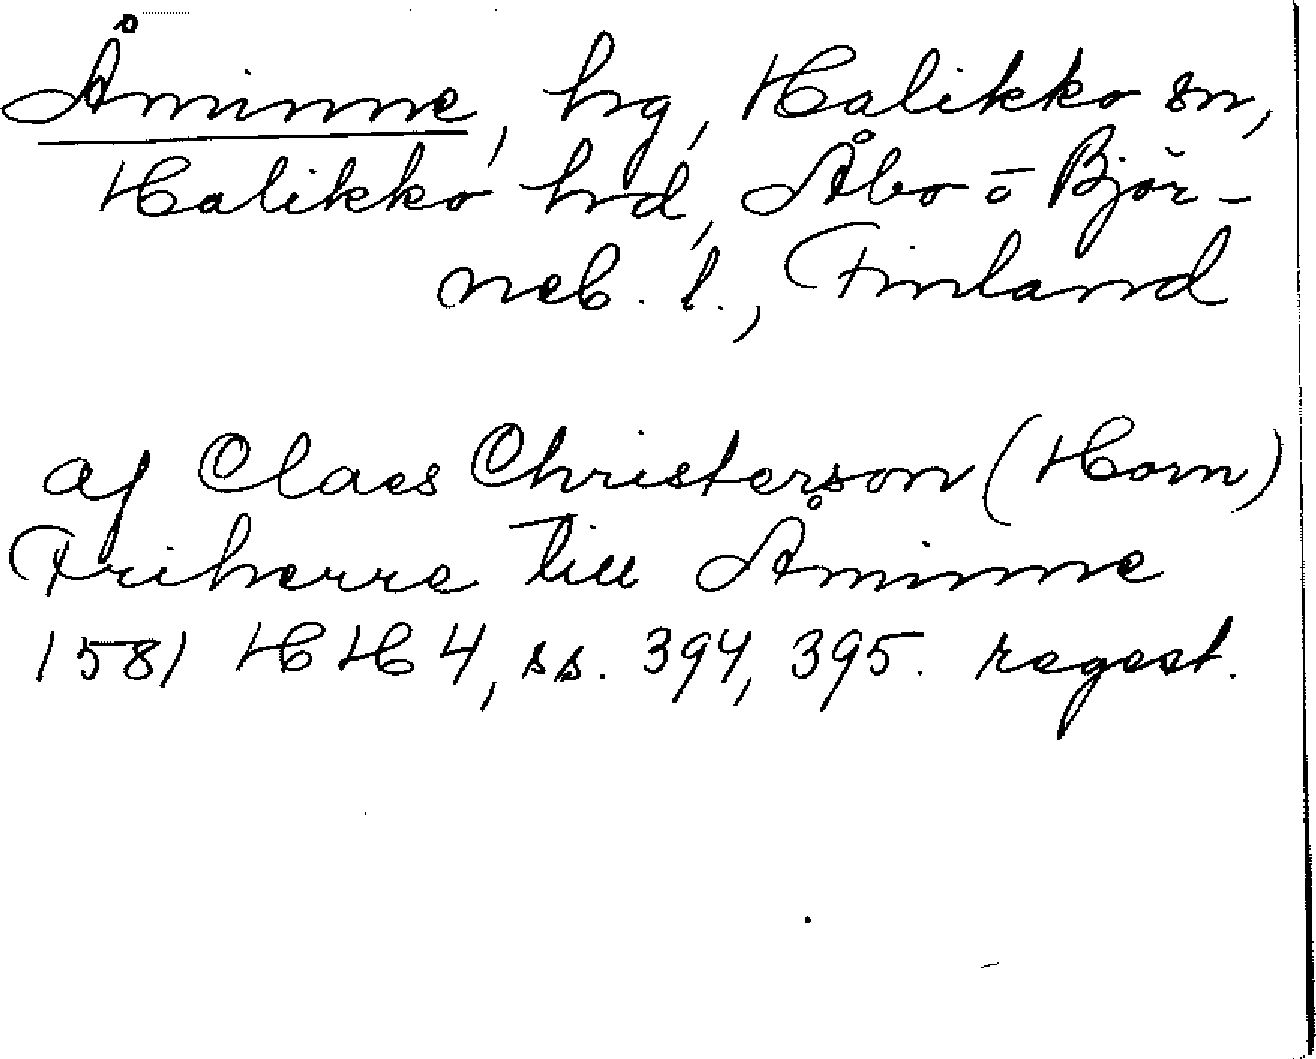 Åminne, hg, Halikko sn,
Halikko hrd, Åbo o Björ-
neb. l., Finland
af Claes Christerson (Horn)
Friherre till Åminne
1581 HH 4, ss. 394, 395. regest.